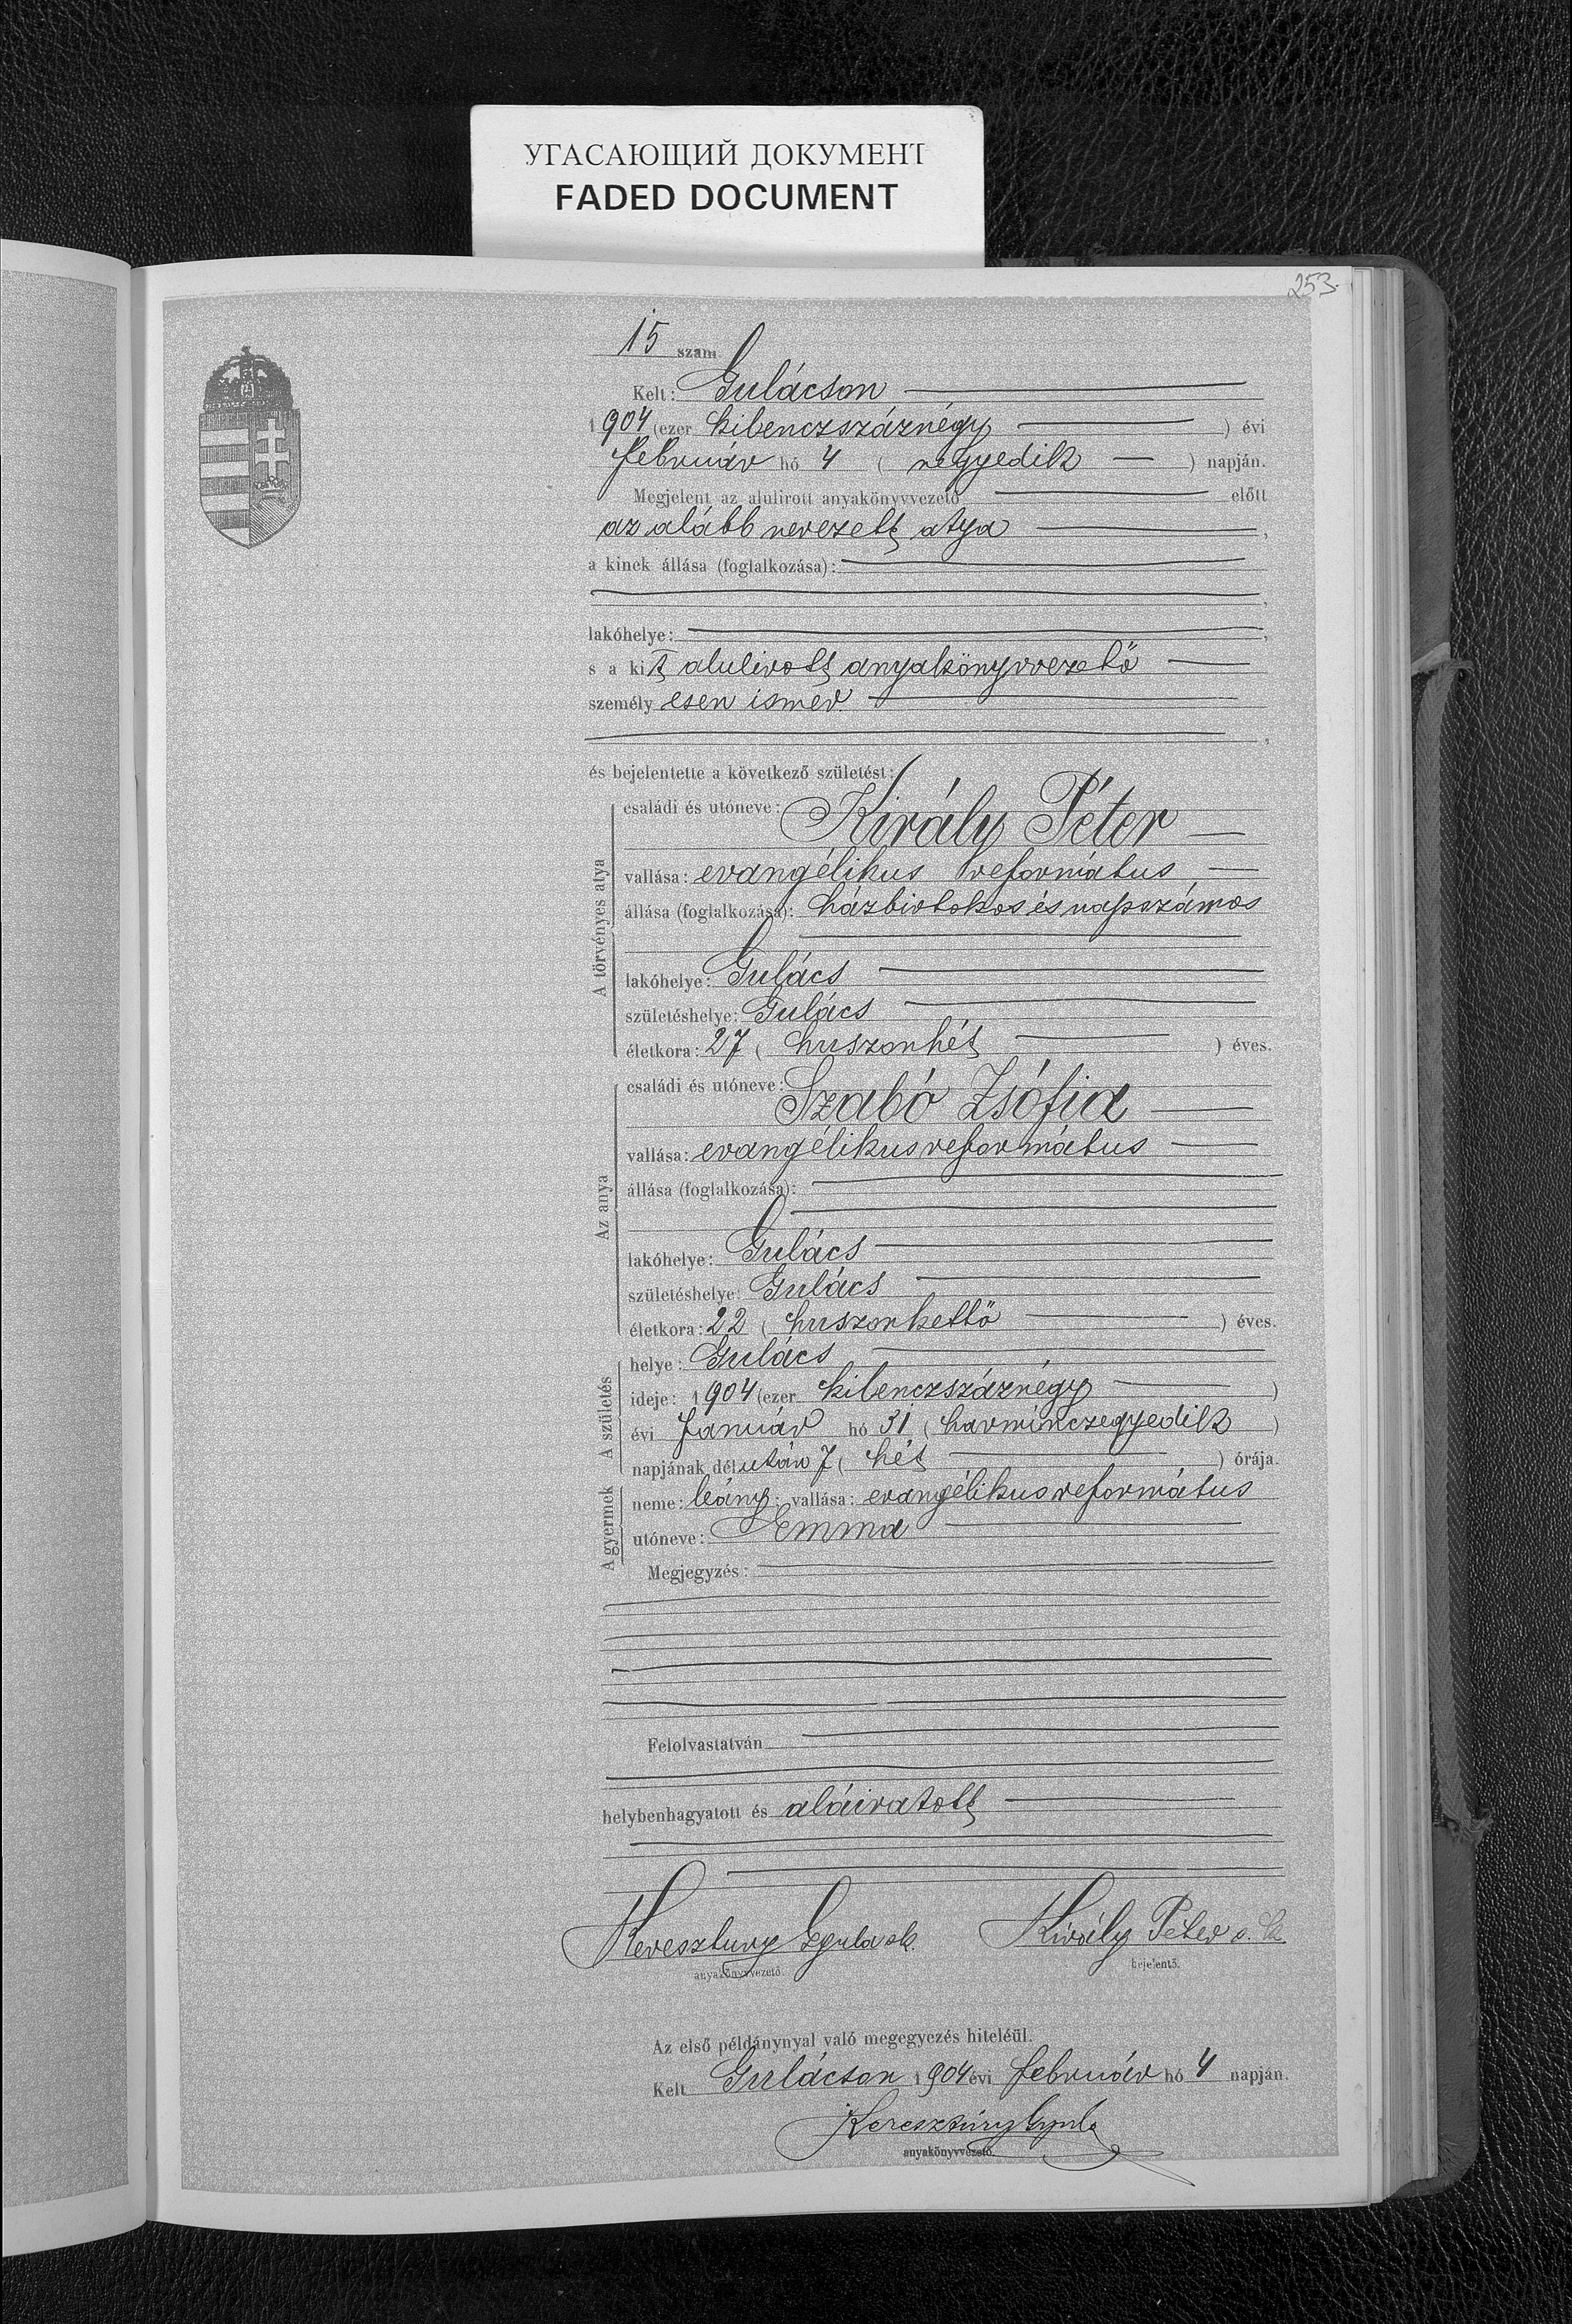 УГАСАЮЩИЙ ДОКУМЕНТ
FADED DOCUMENT
253.
15 szám
Kelt: Gulácson
1904 (ezer kilenczszáznégy) évi
február hó 4 (negyedik) napján.
Megjelent az alulirott anyakönyvvezető előtt
az alább nevezett atya,
a kinek állása (foglalkozása):
,
lakóhelye: ,
s a kit alulirott anyakönyvvezető
személyesen ismer
,
és bejelentette a következő születést:
A törvényes atya
családi és utóneve: Király Péter
vallása: evangélikus református
állása (foglalkozása): házbirtokos és napszámos
lakóhelye: Gulács
születéshelye: Gulács
életkora: 27 (huszonhét) éves.
Az anya
családi és utóneve: Szabó Zsófia
vallása: evangélikus református
állása (foglalkozása):
lakóhelye: Gulács
születéshelye: Gulács
életkora: 22 (huszonkettő) éves.
A születés
helye: Gulács
ideje: 1904 (ezer kilenczszáznégy)
évi január hó 31 (harminczegyedik)
napjának délután 7 (hét) órája.
A gyermek
neme: leány; vallása: evangélikus református
utóneve: Emma
Megjegyzés:
Felolvastatván
helybenhagyatott és aláiratott
Keresztury Gyula sk. Király Péter s. k.
anyakönyvvezető. bejelentő.
Az első példánynyal való megegyezés hiteléül.
Kelt Gulácson 1904 évi február hó 4 napján.
Keresztúry Gyula
anyakönyvvezető.